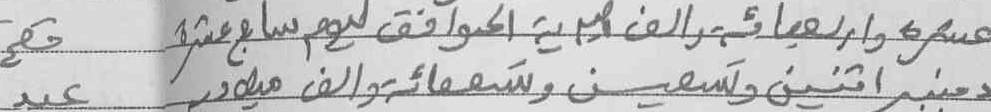 عشره واربعمائة والف هجرية الموافق ليوم سابع عشر
دجنبر اثنين وتسعين وتسعمائة والف ميلادية عبد